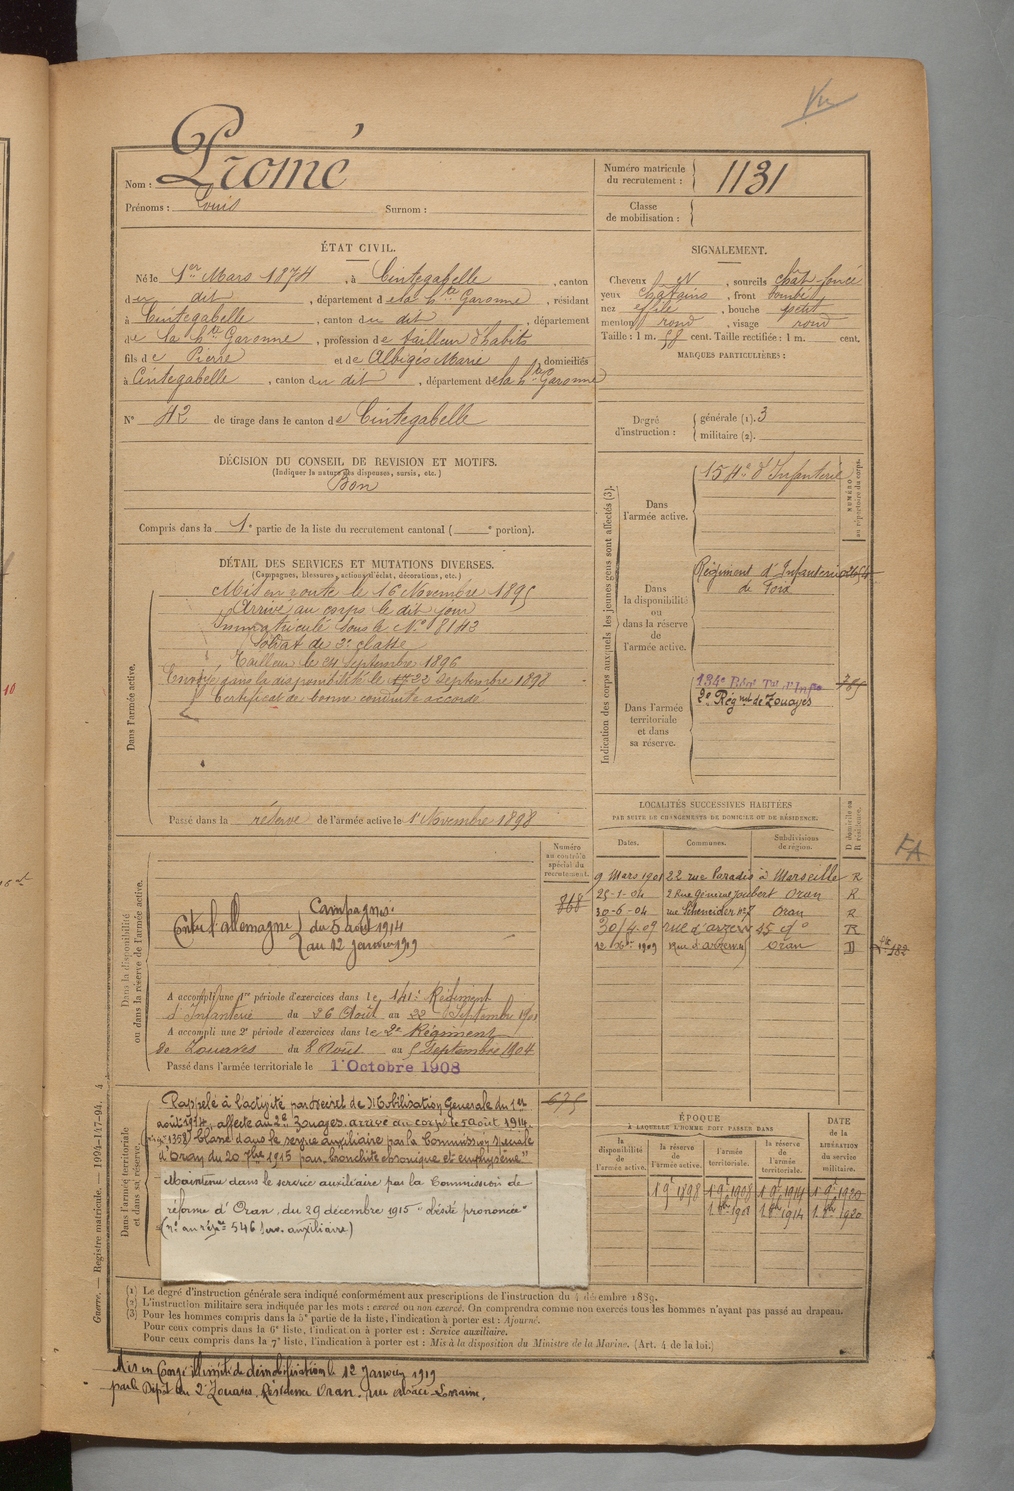 Nom : Promé
Prénoms : Louis Surnom :
Numéro matricule du recrutement : 1131
Classe de mobilisation :
ÉTAT CIVIL.
Né le 1er Mars 1874, à Cintegabelle, canton
du dit, département de la hte Garonne, résidant
à Cintegabelle, canton du dit, département
de la hte Garonne, profession de tailleur d'habits
fils de Pierre et de Albigés Marie, domiciliés
à Cintegabelle, canton du dit, département de la hte Garonne
N° 42 de tirage dans le canton de Cintegabelle
SIGNALEMENT.
Cheveux N, sourcils chât. foncé
yeux châtains, front bombé
nez effilé, bouche petit
menton rond, visage rond
Taille : 1 m. 58 cent. Taille rectifiée : 1 m. cent.
MARQUES PARTICULIÈRES :
Degré d'instruction : générale (1). 3
militaire (2).
DÉCISION DU CONSEIL DE REVISION ET MOTIFS.
(Indiquer la nature des dispenses, sursis, etc.)
Bon
Compris dans la 1e partie de la liste du recrutement cantonal ( e portion).
DÉTAIL DES SERVICES ET MUTATIONS DIVERSES.
(Campagnes, blessures, actions d'éclat, décorations, etc.)
Dans l'armée active.
Mis en route le 16 Novembre 1895
Arrivé au corps le dit jour
Immatriculé sous le N° 8142
Soldat de 2e classe
Tailleur le 24 Septembre 1896
Envoyé dans la disponibilité le 22 Septembre 1898
Certificat de bonne conduite accordé
Passé dans la réserve de l'armée active le 1r Novembre 1898
Indication des corps auxquels les jeunes gens sont affectés (3).
NUMÉRO au répertoire du corps.
Dans l'armée active.
154e d'Infanterie
Dans la disponibilité ou dans la réserve de l'armée active.
Régiment d'Infanterie
de Foix
Dans l'armée territoriale et dans sa réserve.
134e Régt Tal d'Infie
2e Régmt de Zouaves
LOCALITÉS SUCCESSIVES HABITÉES
PAR SUITE DE CHANGEMENTS DE DOMICILE OU DE RÉSIDENCE.
Dates. Communes. Subdivisions de région. D domicile ou R résidence.
9 Mars 1901 22 rue Paradis à Marseille R
25-1-04 2 Rue Général Joubert Oran R
30-6-04 rue Schneider n° 7 Oran R
30/4.09 rue d'arzew 45 do R
12 Xbre 1909 Rue d'arzew Oran D
FA
Dans la disponibilité ou dans la réserve de l'armée active.
Numéro au contrôle spécial du recrutement.
868
Campagnes:
Contre l'allemagne du 5 août 1914
au 12 janvier 1919
A accompli une 1re période d'exercices dans le 141e Régiment
d'Infanterie du 26 Août au 22 Septembre 1901
A accompli une 2e période d'exercices dans le 2e Régiment
de Zouaves du 8 Août au 5 Septembre 1904
Passé dans l'armée territoriale le 1r Octobre 1908
Dans l'armée territoriale et dans sa réserve.
675
Rappelé à l'activité par décret de Mobilisation Generale du 1er
août 1914. affecté au 2e Zouaves. arrivé au corps le 5 août 1914.
Classé dans le service auxiliaire par la Commission speciale
d'Oran du 20 7bre 1915 pour "bronchite chronique et emphysème"
Maintenu dans le service auxiliaire par la Commission de
réforme d'Oran, du 29 décembre 1915 "obésité prononcée"
(n° au répre 546 Serv. auxiliaire)
ÉPOQUE
À LAQUELLE L'HOMME DOIT PASSER DANS
la disponibilité de l'armée active. la réserve de l'armée active. l'armée territoriale. la réserve de l'armée territoriale.
DATE de la LIBÉRATION du service militaire.
1 9e 1898 1 9e 1908 1 9e 1914 1 9e 1920
1 8bre 1908 1 8bre 1914 1 8bre 1920
(1) Le degré d'instruction générale sera indiqué conformément aux prescriptions de l'instruction du 4 décembre 1889.
(2) L'instruction militaire sera indiquée par les mots : exercé ou non exercé. On comprendra comme non exercés tous les hommes n'ayant pas passé au drapeau.
(3) Pour les hommes compris dans la 5e partie de la liste, l'indication à porter est : Ajourné.
Pour ceux compris dans la 6e liste, l'indication à porter est : Service auxiliaire.
Pour ceux compris dans la 7e liste, l'indication à porter est : Mis à la disposition du Ministre de la Marine. (Art. 4 de la loi.)
Mis en Congé illimité de démobilisation le 12 Janvier 1919
par le Dépôt du 2e Zouaves. Résidence Oran. rue alsace-Lorraine.
Guerre. — Registre matricule. — 1994-147-94. 4